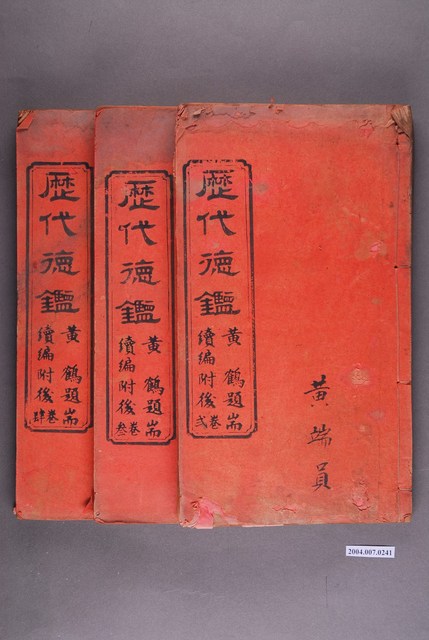 歷代德鑑
黃鶴題耑
續編附後
卷貳
黃端員
歷代德鑑
黃鶴題耑
續編附後
卷叁
歷代德鑑
黃鶴題耑
續編附後
卷肆
2004.007.0241